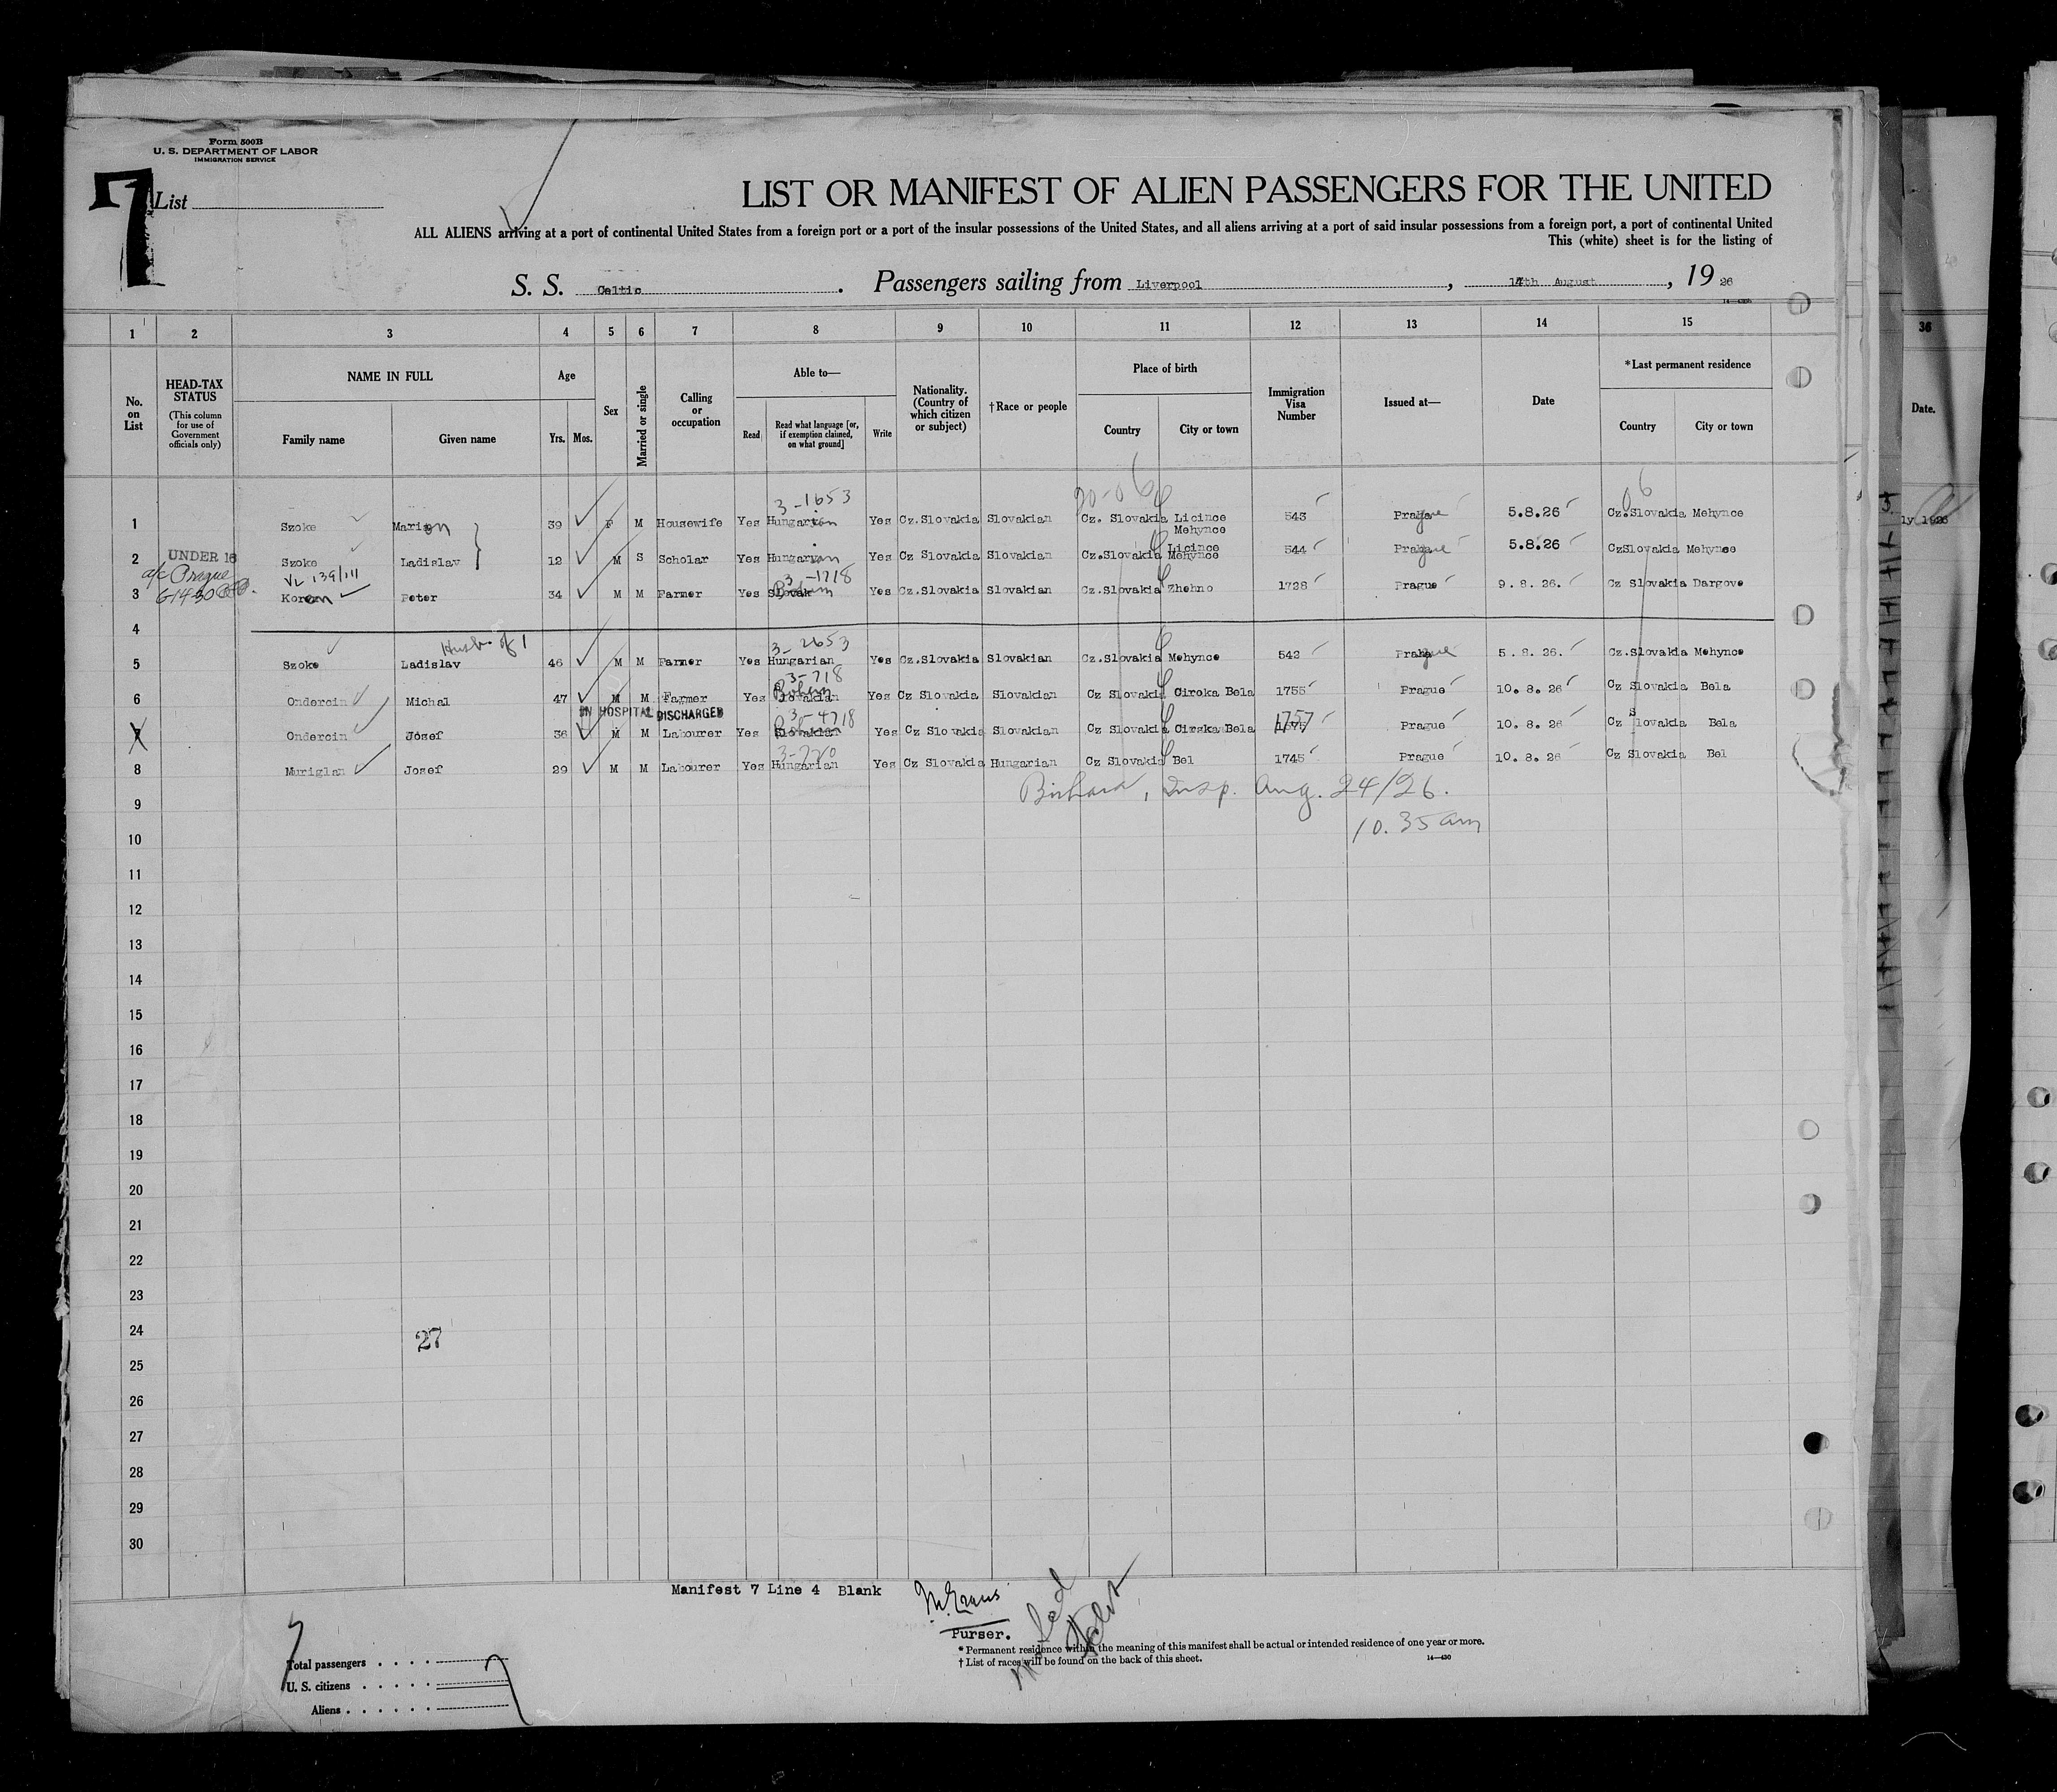 Form 500B
U. S. DEPARTMENT OF LABOR
IMMIGRATION SERVICE
7 List
LIST OR MANIFEST OF ALIEN PASSENGERS FOR THE UNITED
ALL ALIENS arriving at a port of continental United States from a foreign port or a port of the insular possessions of the United States, and all aliens arriving at a port of said insular possessions from a foreign port, a port of continental United
This (white) sheet is for the listing of
S. S. Celtic . Passengers sailing from Liverpool , 14th August , 19 26
1 2 3 4 5 6 7 8 9 10 11 12 13 14 15 36
No. on List
HEAD-TAX STATUS
(This column for use of Government officials only)
NAME IN FULL
Family name Given name
Age
Yrs. Mos.
Sex
Married or single
Calling or occupation
Able to—
Read
Read what language [or, if exemption claimed, on what ground]
Write
Nationality. (Country of which citizen or subject)
†Race or people
Place of birth
Country City or town
Immigration Visa Number
Issued at—
Date
*Last permanent residence
Country City or town
Date.
3-1653 20-06 06
1 Szoke Marion 39 F M Housewife Yes Hungarian Yes Cz.Slovakia Slovakian Cz. Slovakia Licince Mehynce 543 Prague 5.8.26 Cz.Slovakia Mehynce
2 UNDER 16 Szoke Ladislav 12 M S Scholar Yes Hungarian Yes Cz Slovakia Slovakian Cz.Slovakia Licince Mehynce 544 Prague 5.8.26 CzSlovakia Mehynce
a/c Prague VL 139/111 3-1718
3 61430 Korem Peter 34 M M Farmer Yes Slovak Yes Cz.Slovakia Slovakian Cz.Slovakia Zhehno 1728 Prague 9.8.26. Cz Slovakia Dargove
4
Husb. of 1 3-2653
5 Szoke Ladislav 46 M M Farmer Yes Hungarian Yes Cz.Slovakia Slovakian Cz.Slovakia Mehynce 542 Prague 5.8.26. Cz.Slovakia Mehynce
3-718
6 Ondercin Michal 47 M M Farmer Yes Slovakian Yes Cz Slovakia Slovakian Cz Slovakia Ciroka Bela 1755 Prague 10.8.26 Cz Slovakia Bela
IN HOSPITAL DISCHARGED 3-4718
7 Ondercin Josef 36 M M Labourer Yes Slovakian Yes Cz Slovakia Slovakian Cz Slovakia Cirska Bela 1757 Prague 10.8.26 Cz Slovakia Bela
3-720
8 Muriglan Josef 29 M M Labourer Yes Hungarian Yes Cz Slovakia Hungarian Cz Slovakia Bel 1745 Prague 10.8.26 Cz Slovakia Bel
Insp. Aug. 24/26.
9
10.35 am
10
11
12
13
14
15
16
17
18
19
20
21
22
23
24
27
25
26
27
28
29
30
Manifest 7 Line 4 Blank
Purser.
* Permanent residence within the meaning of this manifest shall be actual or intended residence of one year or more.
† List of races will be found on the back of this sheet.
14—430
Total passengers
U. S. citizens
Aliens
7